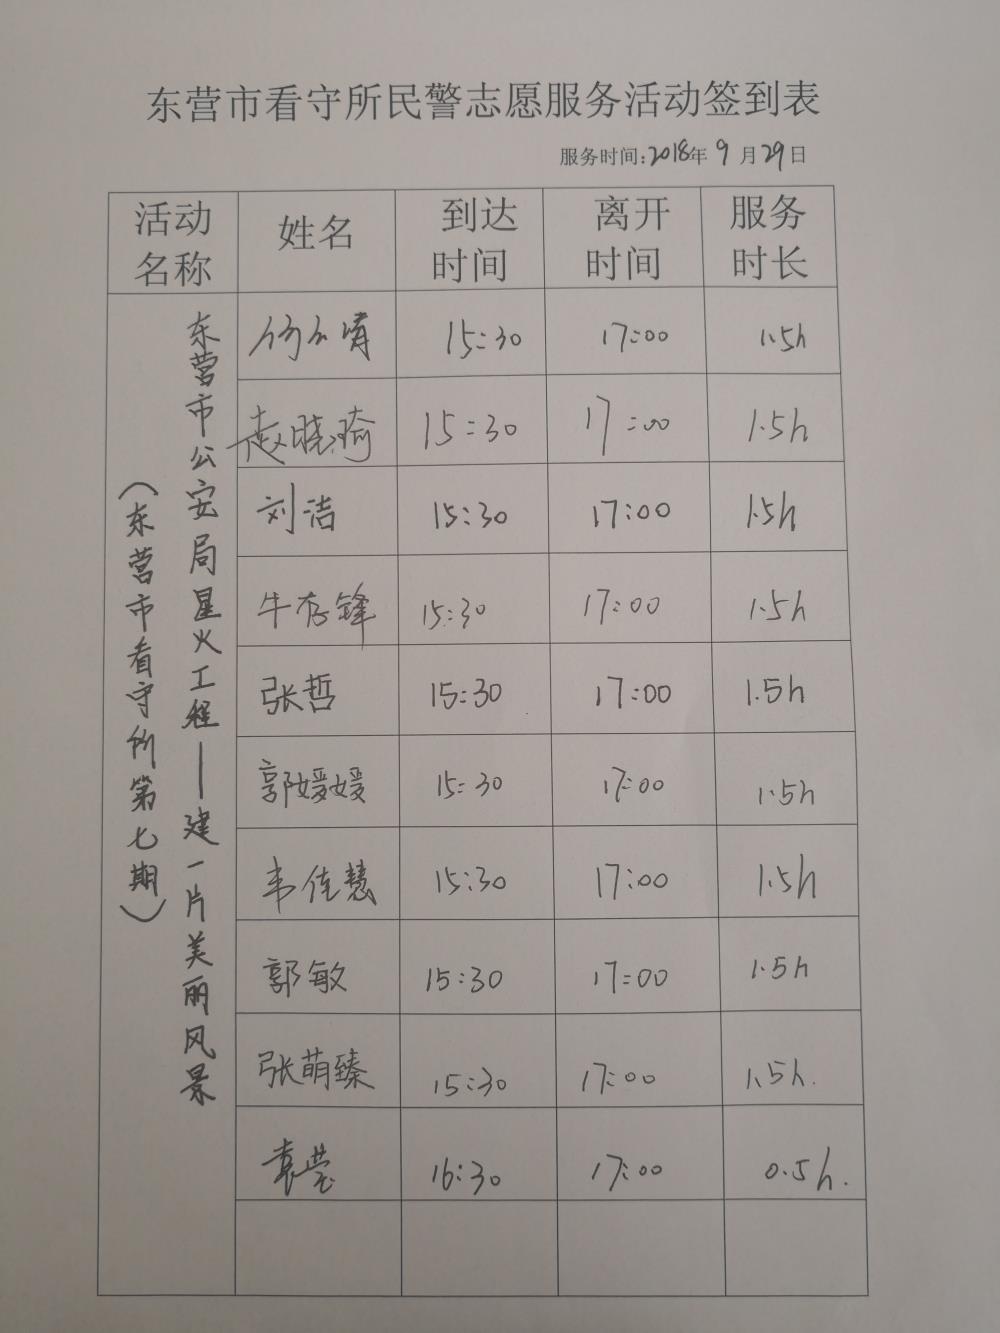 东营市看守所民警志愿服务活动签到表
服务时间:2018年9月29日
活动名称 姓名 到达时间 离开时间 服务时长
东营市公安局星火工程——建一片美丽风景
(东营市看守所第七期)
15:30 17:00 1.5h
赵晓琦 15:30 17:00 1.5h
刘洁 15:30 17:00 1.5h
牛存锋 15:30 17:00 1.5h
张哲 15:30 17:00 1.5h
郭媛媛 15:30 17:00 1.5h
韦佳慧 15:30 17:00 1.5h
郭敏 15:30 17:00 1.5h
张萌臻 15:30 17:00 1.5h.
袁莹 16:30 17:00 0.5h.